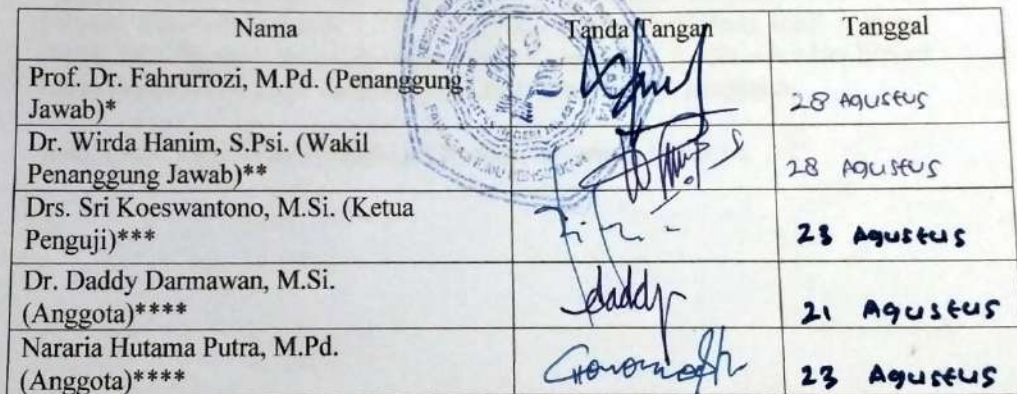 Nama Tanda Tangan Tanggal
Prof. Dr. Fahrurrozi, M.Pd. (Penanggung
Jawab)* 28 Agustus
Dr. Wirda Hanim, S.Psi. (Wakil
Penanggung Jawab)** 28 Agustus
Drs. Sri Koeswantono, M.Si. (Ketua
Penguji)*** 23 Agustus
Dr. Daddy Darmawan, M.Si.
(Anggota)**** daddy 21 Agustus
Nararia Hutama Putra, M.Pd.
(Anggota)**** 23 Agustus